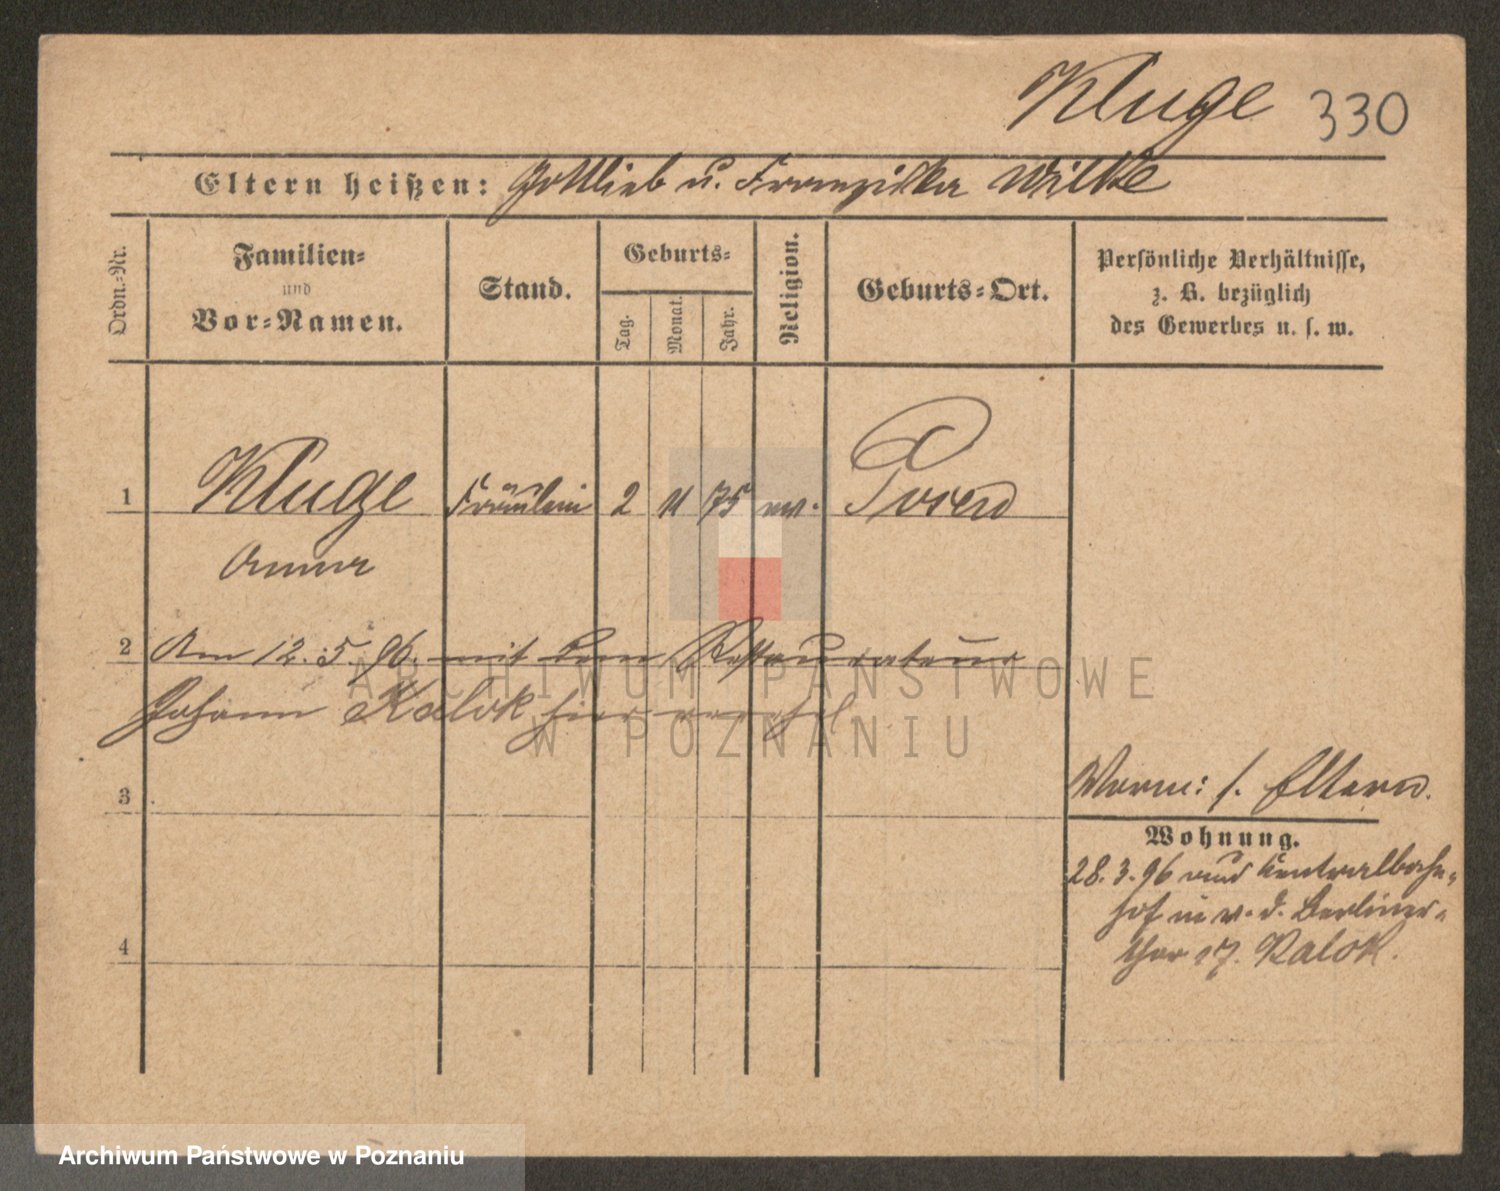 Kluge 330
Eltern heißen: Gottlieb u. Franziska Wilke
Ordn.-Nr.
Familien-
und
Vor-Namen.
Stand.
Geburts-
Tag.
Monat.
Jahr.
Religion.
Geburts-Ort.
Persönliche Verhältnisse,
z. B. bezüglich
des Gewerbes u. s. w.
1 Kluge Fräulein 2 11 75 ev. Posen
Anna
2 Am 12.5.96. mit dem Restaurateur
Johann Kalok hier verehel.
ARCHIWUM PAŃSTWOWE
W POZNANIU
3
Verm: s. Eltern.
Wohnung.
28.3.96 nach Centralbahn-
hof in v. d. Berliner-
thor 17. Kalok.
4
Archiwum Państwowe w Poznaniu